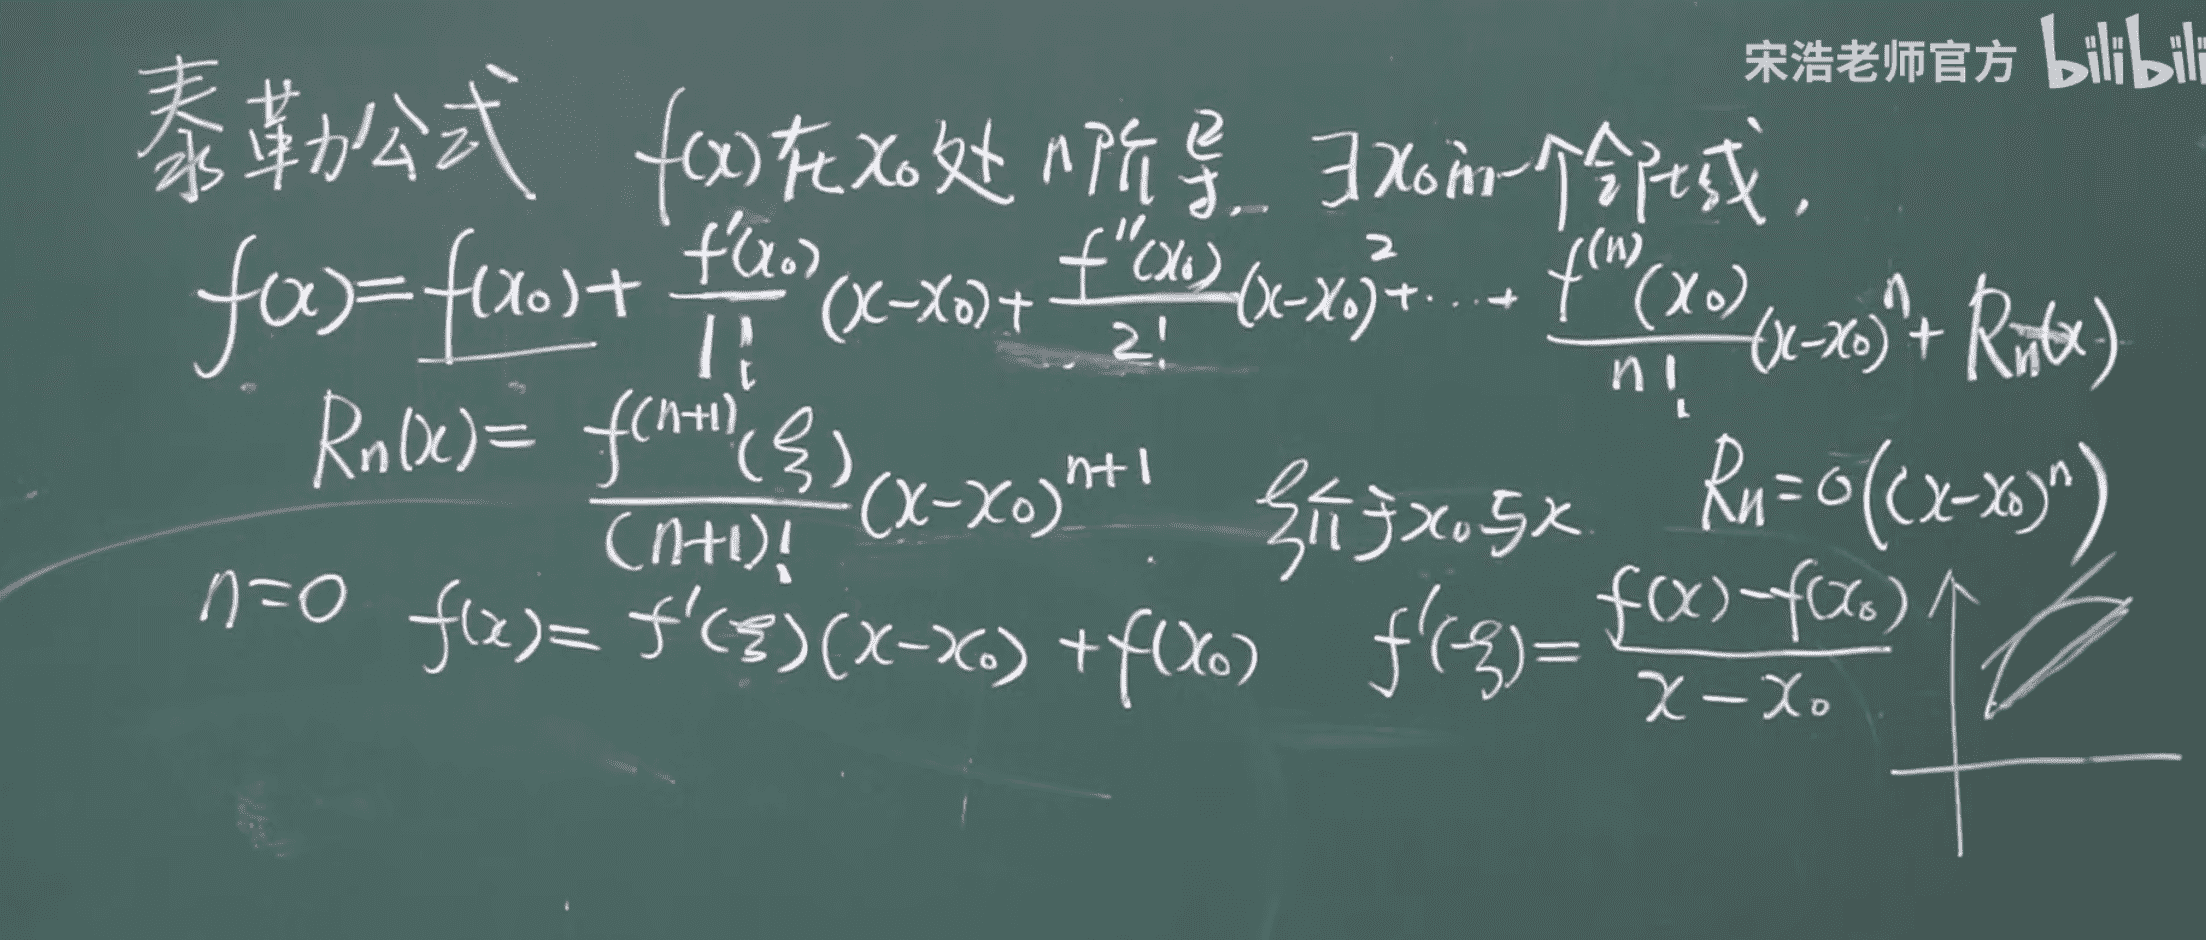 宋浩老师官方 bilibili
泰勒公式 f(x)在x₀处n阶导. ∃x₀的一个邻域,
f(x)=f(x₀)+\frac{f'(x₀)}{1!}(x-x₀)+\frac{f''(x₀)}{2!}(x-x₀)²+⋯+\frac{f^{(n)}(x₀)}{n!}(x-x₀)ⁿ+Rn(x)
Rn(x)=\frac{f^{(n+1)}(ξ)}{(n+1)!}(x-x₀)^{n+1} ξ介于x₀与x Rn=o((x-x₀)ⁿ)
n=0 f(x)=f'(ξ)(x-x₀)+f(x₀) f'(ξ)=\frac{f(x)-f(x₀)}{x-x₀}